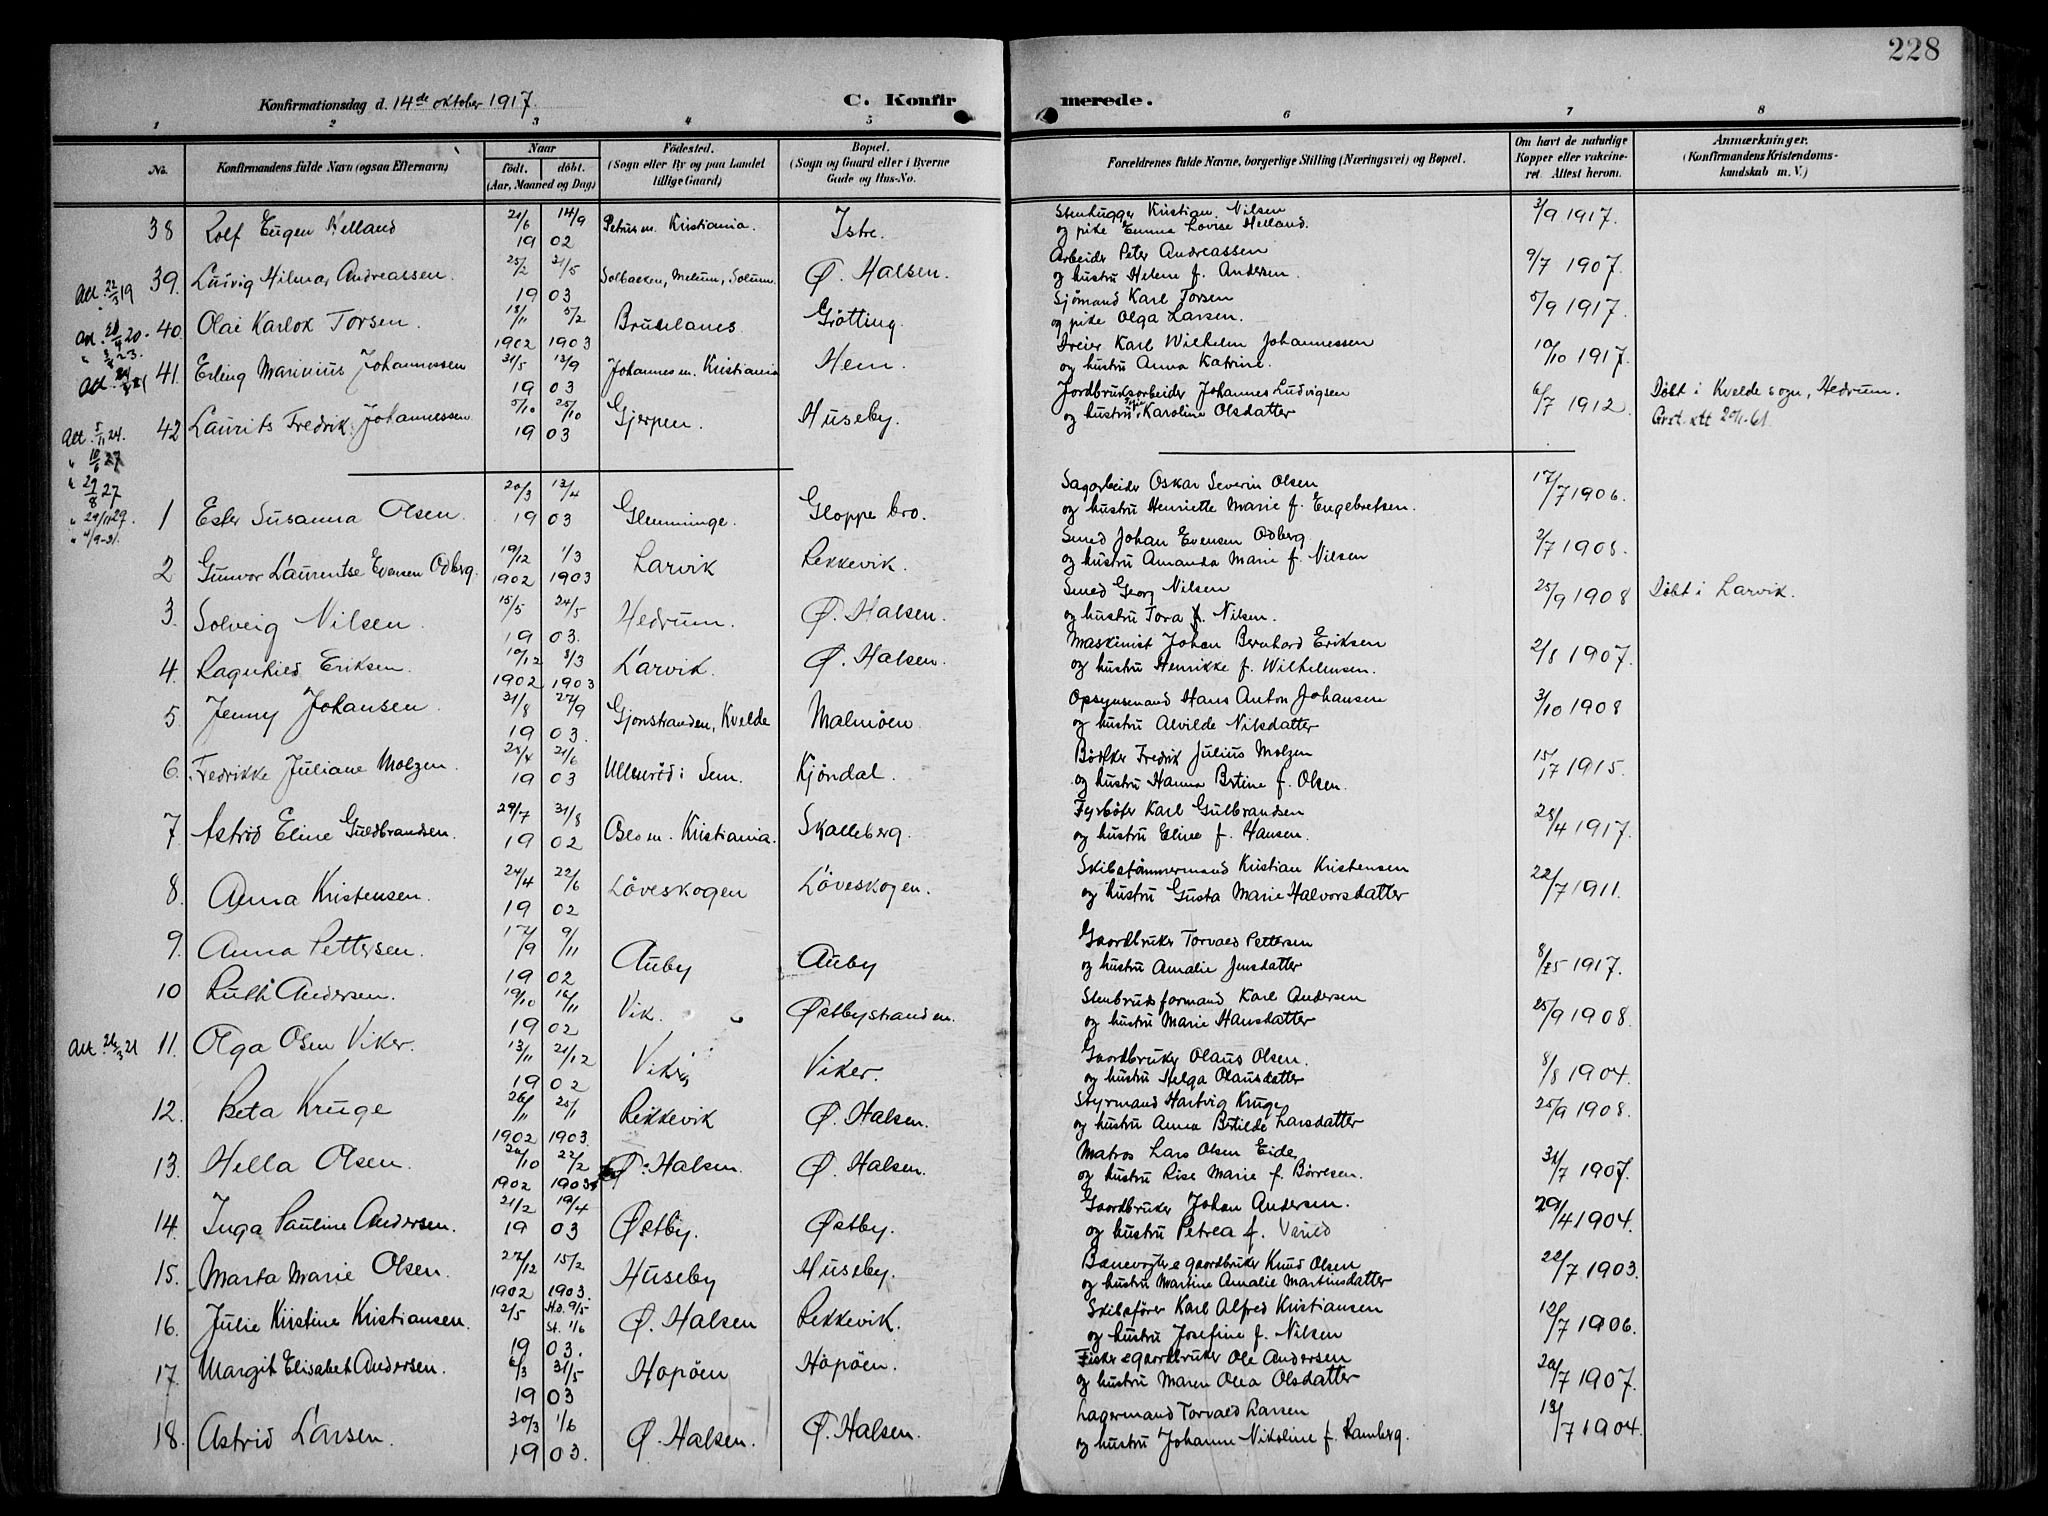 228
Konfirmationsdag d. 14de oktober 1917. C. Konfirmerede.
1 2 3 4 5 6 7 8
No. Konfirmandens fulde Navn (ogsaa Efternavn) Naar født. døbt. (Aar, Maaned og Dag) Fødested. (Sogn eller By og paa Landet tillige Gaard) Bopæl. (Sogn og Gaard eller i Byerne Gade og Hus-No. Forældrenes fulde Navne, borgerlige Stilling (Næringsvei) og Bopæl. Om havt de naturlige Kopper eller vakcineret. Attest herom. Anmærkninger. (Konfirmandens Kristendomskundskab m. V.)
38 Rolf Eugen Helland 21/6 14/9 1902 Petrus m. Kristiania. Istre. Stenhugger Kristian Nilsen
og pike Emma Lovise Helland. 3/9 1917.
Att. 22/3 19 39. Ludvig Hilmar Andreassen. 25/2 21/5 1903 Solbacken, Melum, Solum Ø. Halsen. Arbeider Peter Andreassen
og hustru Helene f. Andersen. 9/7 1907.
40. Olai Karlot Torsen. 18/11 1902 5/2 1903 Brunlanes Grøtting. Sjømand Karl Torsen
og pike Olga Larsen. 5/9 1917.
41. Erling Marinius Johannessen 31/5 13/9 1903 Johannes m. Kristiania Hem. Dreier Karl Wilhelm Johannessen
og hustru Anna Katrine. 10/10 1917.
Att. 5/11 24. 42 Laurits Fredrik Johannessen 5/10 25/10 1903 Gjerpen. Huseby. Jordbruksarbeider Johannes Ludvigsen
og hustru Karoline Olsdatter 6/7 1912. Døbt i Kvelde sogn, Hedrum.
" 10/6 27
" 29/8 27
" 29/11 29.
1 Ester Susanna Olsen. 20/3 12/4 1903 Glemminge. Gloppe bro. Sagarbeider Oskar Severin Olsen
og hustru Henriette Marie f. Engebretsen. 17/7 1906.
2 Gunvor Laurentse Evensen Odberg. 19/12 1902 1/3 1903 Larvik Rekkevik. Smed Johan Evensen Odberg
og hustru Amanda Marie f. Nilsen 2/7 1908.
3. Solveig Nilsen. 15/5 24/5 1903. Hedrum. Ø. Halsen. Smed Georg Nilsen
og hustru Tora f. Nilsen. 25/9 1908 Døbt i Larvik.
4. Ragnhild Eriksen. 10/12 1902 8/3 1903 Larvik. Ø. Halsen. Maskinist Johan Bernhard Eriksen
og hustru Henrikke f. Wilhelmsen. 2/8 1907.
5. Jenny Johansen. 31/8 27/9 1903. Gjonstranden, Kvelde Malmøen. Opsynsmand Hans Anton Johansen
og hustru Alvilde Nilsdatter 3/10 1908
6. Fredrikke Juliane Molzen. 25/4 21/6 1903 Ullensrød i Sem. Kjøndal. Bødker Fredrik Julius Molzen
og hustru Hanna Bertine f. Olsen. 1915.
7. Astrid Eline Guldbrandsen. 29/7 31/8 1902 Oslo m. Kristiania. Skalleberg. Fyrbøter Karl Gulbrandsen
og hustru Eline f. Hansen. 28/4 1917.
8. Anna Kristensen. 24/4 22/6 1902 Løveskogen Løveskogen. Skibstømmermand Kristian Kristensen
og hustru Gusta Marie Halvorsdatter 22/7 1911.
9. Anna Pettersen. 17/9 9/11 1902 Auby Auby Gaardbruker Torvald Pettersen
og hustru Amalie Jensdatter 1917.
10 Ruth Andersen. 19/10 16/11 1902 Vik. Østbystranden. Stenbruksformand Karl Andersen
og hustru Marie Hansdatter 25/9 1908.
11. Olga Olsen Viker. 13/11 21/12 1902 Viker Viker. Gaardbruker Olaus Olsen.
og hustru Helga Olausdatter 8/8 1904.
12. Reta Kruge 26/11 1902 25/1 1903. Rekkevik Ø. Halsen. Styrmand Hartvig Kruge
og hustru Anna Bertilde Larsdatter 25/9 1908.
13. Hella Olsen. 20/10 1902 22/2 1903 Ø. Halsen. Ø. Halsen. Matros Lars Olsen Eide
og hustru Rise Marie f. Børresen. 31/7 1907.
14. Inga Pauline Andersen. 21/2 19/4 1903 Østby. Østby. Gaardbruker Johan Andersen.
og hustru Petrea f. 29/4 1904.
15. Marta Marie Olsen. 27/12 1902 15/2 1903. Huseby Huseby. Banevogter & gaardbruker Knud Olsen
og hustru Martine Amalie Martinsdatter 22/7 1903.
16. Julie Kristine Kristiansen. 2/5 Hd. 9/5 St. 1/6 1903. Ø. Halsen Rekkevik. Skibsfører Karl Alfred Kristiansen
og hustru Josefine f. Nilsen 12/7 1906.
17. Margit Elisabet Andersen. 6/3 31/5 1903 Hopøen Hopøen. Fisker & gaardbruker Ole Andersen
og hustru Maren Olea Olsdatter 20/7 1907.
18. Astrid Larsen. 30/3 1/6 1903. Ø. Halsen. Ø. Halsen. Lagermand Torvald Larsen
og hustru Johanne Nikoline f. Ramberg. 13/7 1904.